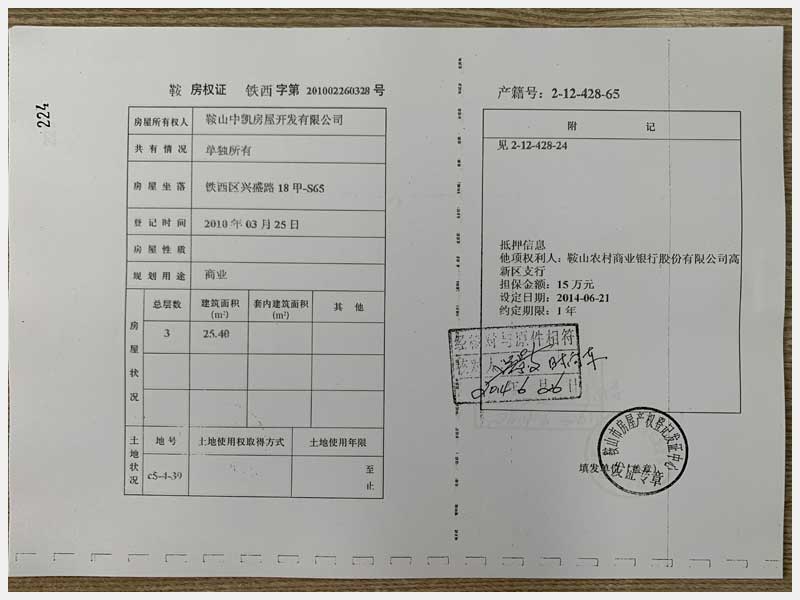 224
鞍 房权证 铁西 字第 201002260328 号
房屋所有权人 鞍山中凯房屋开发有限公司
共有情况 单独所有
房屋坐落 铁西区兴盛路 18 甲-S65
登记时间 2010 年 03 月 25 日
房屋性质
规划用途 商业
房屋状况
总层数 建筑面积(m²) 套内建筑面积(m²) 其他
3 25.40
土地状况
地号 土地使用权取得方式 土地使用年限
c5-4-39 至
止
产籍号：2-12-428-65
附 记
见 2-12-428-24
抵押信息
他项权利人：鞍山农村商业银行股份有限公司高
新区支行
担保金额：15 万元
设定日期：2014-06-21
约定期限：1 年
经核对与原件相符
核对人
2014 年 6 月 26 日
填发单位（盖章）
鞍山市房屋产权登记发证中心
发证专章